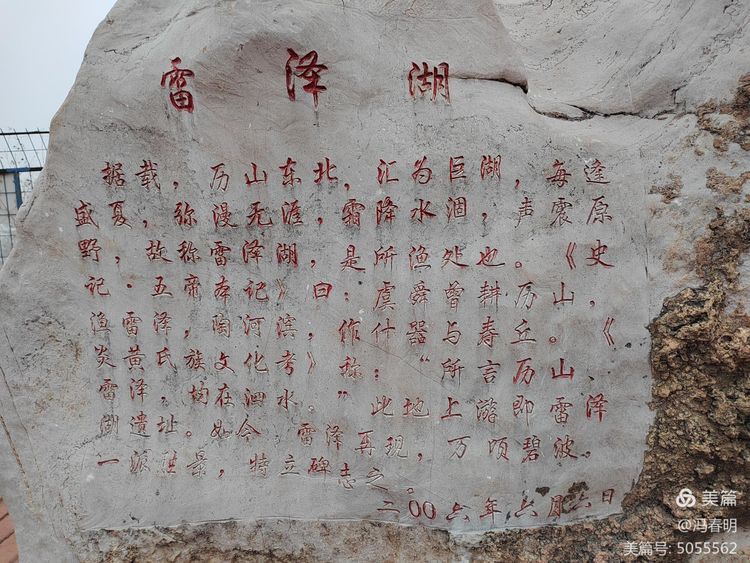 雷泽湖
据载，历山东北，汇为巨湖，每逢
盛夏，弥漫无涯，霜降水涸，声震原
野，故称雷泽湖，是所渔处也。《史
记·五帝本记》曰：虞舜曾耕历山，
渔雷泽，陶河滨，作什器与寿丘。《
炎黄氏族文化考》称：“所言历山、
雷泽，均在泗水。”此地上游即雷泽
湖遗址。如今，雷泽再现，万顷碧波。
一派胜景，特立碑志之。
二00六年六月六日
美篇
@冯春明
美篇号: 5055562